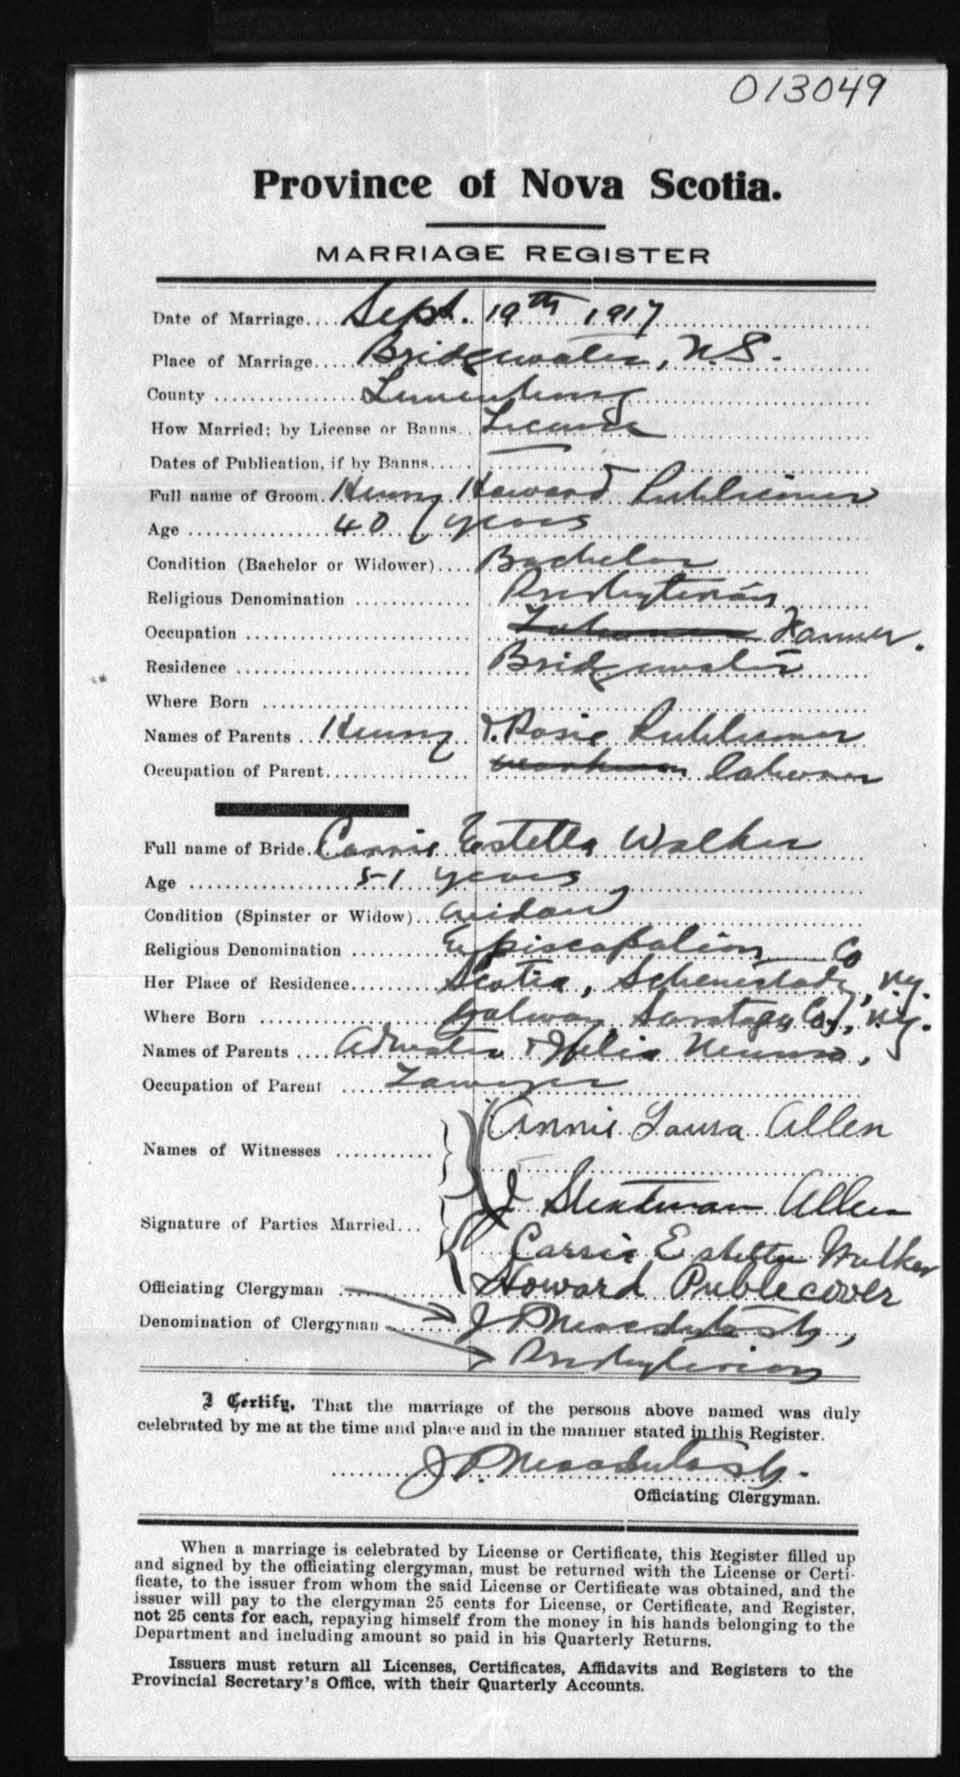 013049
Province of Nova Scotia.
MARRIAGE REGISTER
Date of Marriage... Sept. 19th 1917
Place of Marriage.... Bridgewater, N.S.
County ................ Lunenburg
How Married; by License or Banns.. License
Dates of Publication, if by Banns.....
Full name of Groom. Henry Howard Publicover
Age .................. 40 years
Condition (Bachelor or Widower).... Bachelor
Religious Denomination ............. Presbyterian
Occupation ......................... Farmer.
Residence .......................... Bridgewater
Where Born .......................
Names of Parents ... Henry & Rosie Publicover
Occupation of Parent................
Full name of Bride. Carrie Estella Walker
Age .................. 51 years
Condition (Spinster or Widow)... Widow
Religious Denomination ........... Episcopalian
Her Place of Residence............ Scotia, Schenectady Co, N.Y.
Where Born ....................... Galway Saratoga Co., N.Y.
Names of Parents .... & Julia
Occupation of Parent .... Lawyer
Names of Witnesses ........... Annie Laura Allen
J Allen
Signature of Parties Married... Carrie Estella Walker
Howard Publecover
Officiating Clergyman ............ J P MacIntosh,
Denomination of Clergyman ........ Presbyterian
I Certify, That the marriage of the persons above named was duly
celebrated by me at the time and place and in the manner stated in this Register.
J P MacIntosh.
Officiating Clergyman.
When a marriage is celebrated by License or Certificate, this Register filled up
and signed by the officiating clergyman, must be returned with the License or Certi-
ficate, to the issuer from whom the said License or Certificate was obtained, and the
issuer will pay to the clergyman 25 cents for License, or Certificate, and Register,
not 25 cents for each, repaying himself from the money in his hands belonging to the
Department and including amount so paid in his Quarterly Returns.
Issuers must return all Licenses, Certificates, Affidavits and Registers to the
Provincial Secretary's Office, with their Quarterly Accounts.